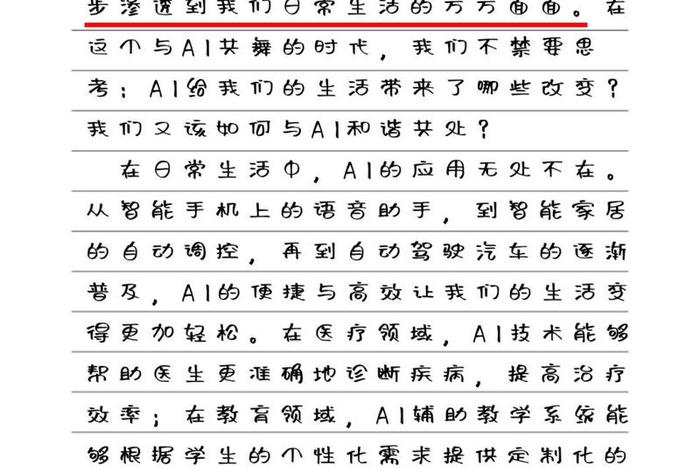 步渗透到我们日常生活的方方面面。在
这个与AI共舞的时代，我们不禁要思
考：AI给我们的生活带来了哪些改变？
我们又该如何与AI和谐共处？
在日常生活中，AI的应用无处不在。
从智能手机上的语音助手，到智能家居
的自动调控，再到自动驾驶汽车的逐渐
普及，AI的便捷与高效让我们的生活变
得更加轻松。在医疗领域，AI技术能够
帮助医生更准确地诊断疾病，提高治疗
效率；在教育领域，AI辅助教学系统能
够根据学生的个性化需求提供定制化的